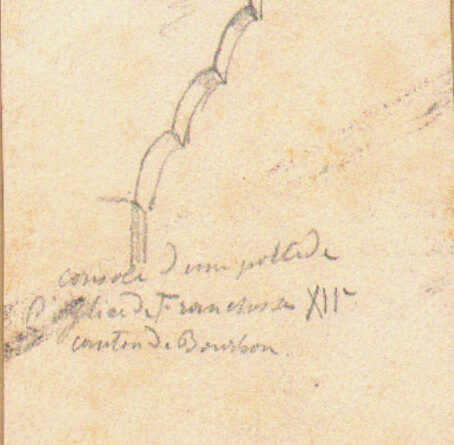 console d'une porte de
l'église de Franchesse XIIe
canton de Bourbon